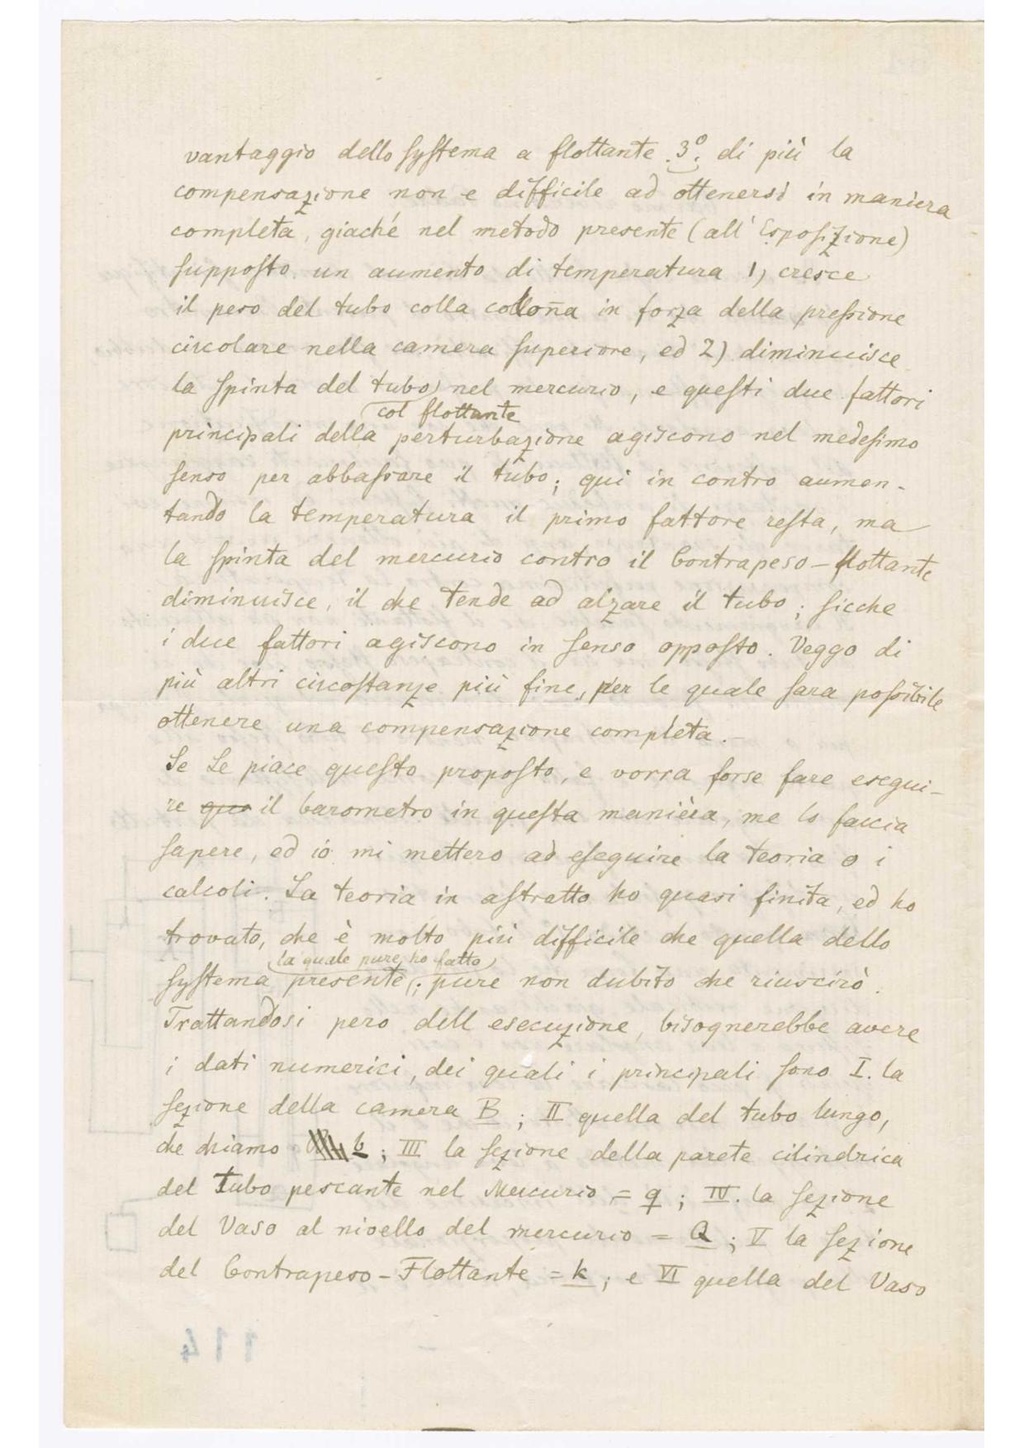 vantaggio dello systema a flottante. 3º. di più la
compensazione non e difficile ad ottenersi in maniera
completa, giaché nel metodo presente (all' Esposizione)
supposto un aumento di temperatura 1) cresce
il peso del tubo colla colonna in forza della pressione
circolare nella camera superiore, ed 2) diminuisce
la spinta del tubo) nel mercurio, e questi due fattori
col flottante
principali della perturbazione agiscono nel medesimo
senso per abbassare il tubo; qui in contro aumen-
tando la temperatura il primo fattore resta, ma
la spinta del mercurio contro il Contrapeso-flottante
diminuisce, il che tende ad alzare il tubo; sicche
i due fattori agiscono in senso opposto. Veggo di
più altri circostanze più fine, per le quale sara possibile
ottenere una compensazione completa.-
Se Le piace questo proposto, e vorra forse fare esegui-
re il barometro in questa manièra, me lo faccia
sapere, ed io mi mettero ad eseguire la teoria o i
calcoli. La teoria in astratto ho quasi finita, ed ho
trovato, che è molto più difficile che quella dello
la quale pure ho fatto
systema presente; pure non dubito che riuscirò.
Trattandosi pero dell esecuzione, bisognerebbe avere
i dati numerici, dei quali i principali sono I. la
sezione della camera B; II quella del tubo lungo,
che chiamo b; III la sezione della parete cilindrica
del Tubo pescante nel Mercurio = q; IV. la sezione
del Vaso al nivello del mercurio = Q; V la sezione
del Contrapeso-Flottante = k; e VI quella del Vaso
114